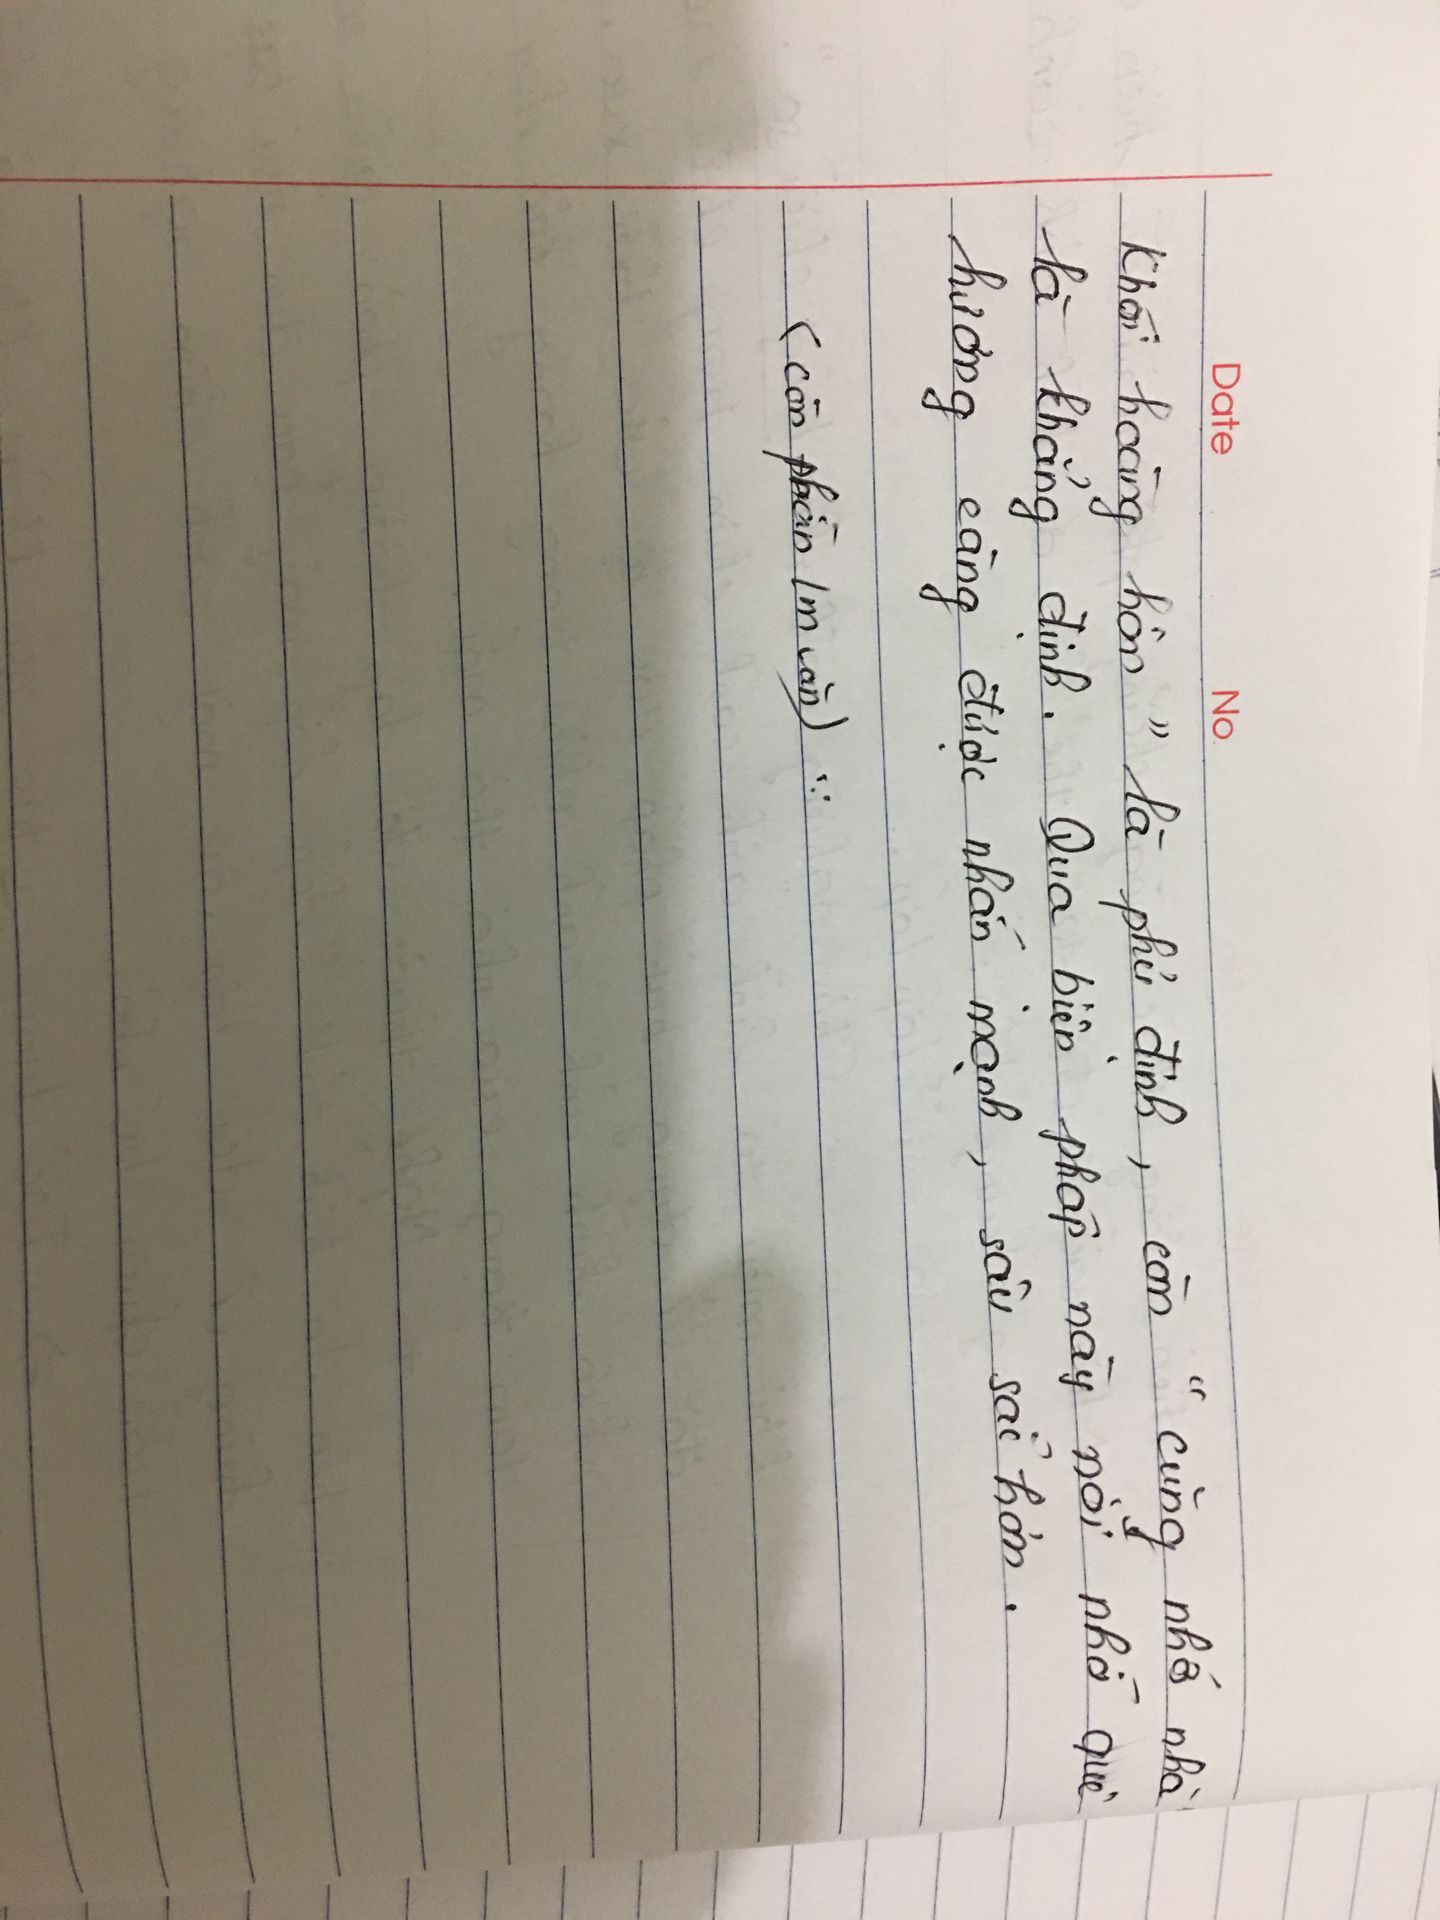 Date No.
khói hoàng hôn" là phủ định, còn "cũng nhớ nhà"
là khẳng định. Qua biện pháp này nỗi nhớ quê
hương càng được nhấn mạnh, sâu sắc hơn.
(còn phần lm văn) :